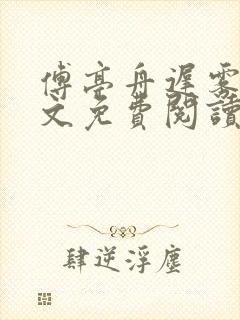 傅亭舟遲霧
文免費閱讀
肆逆浮塵